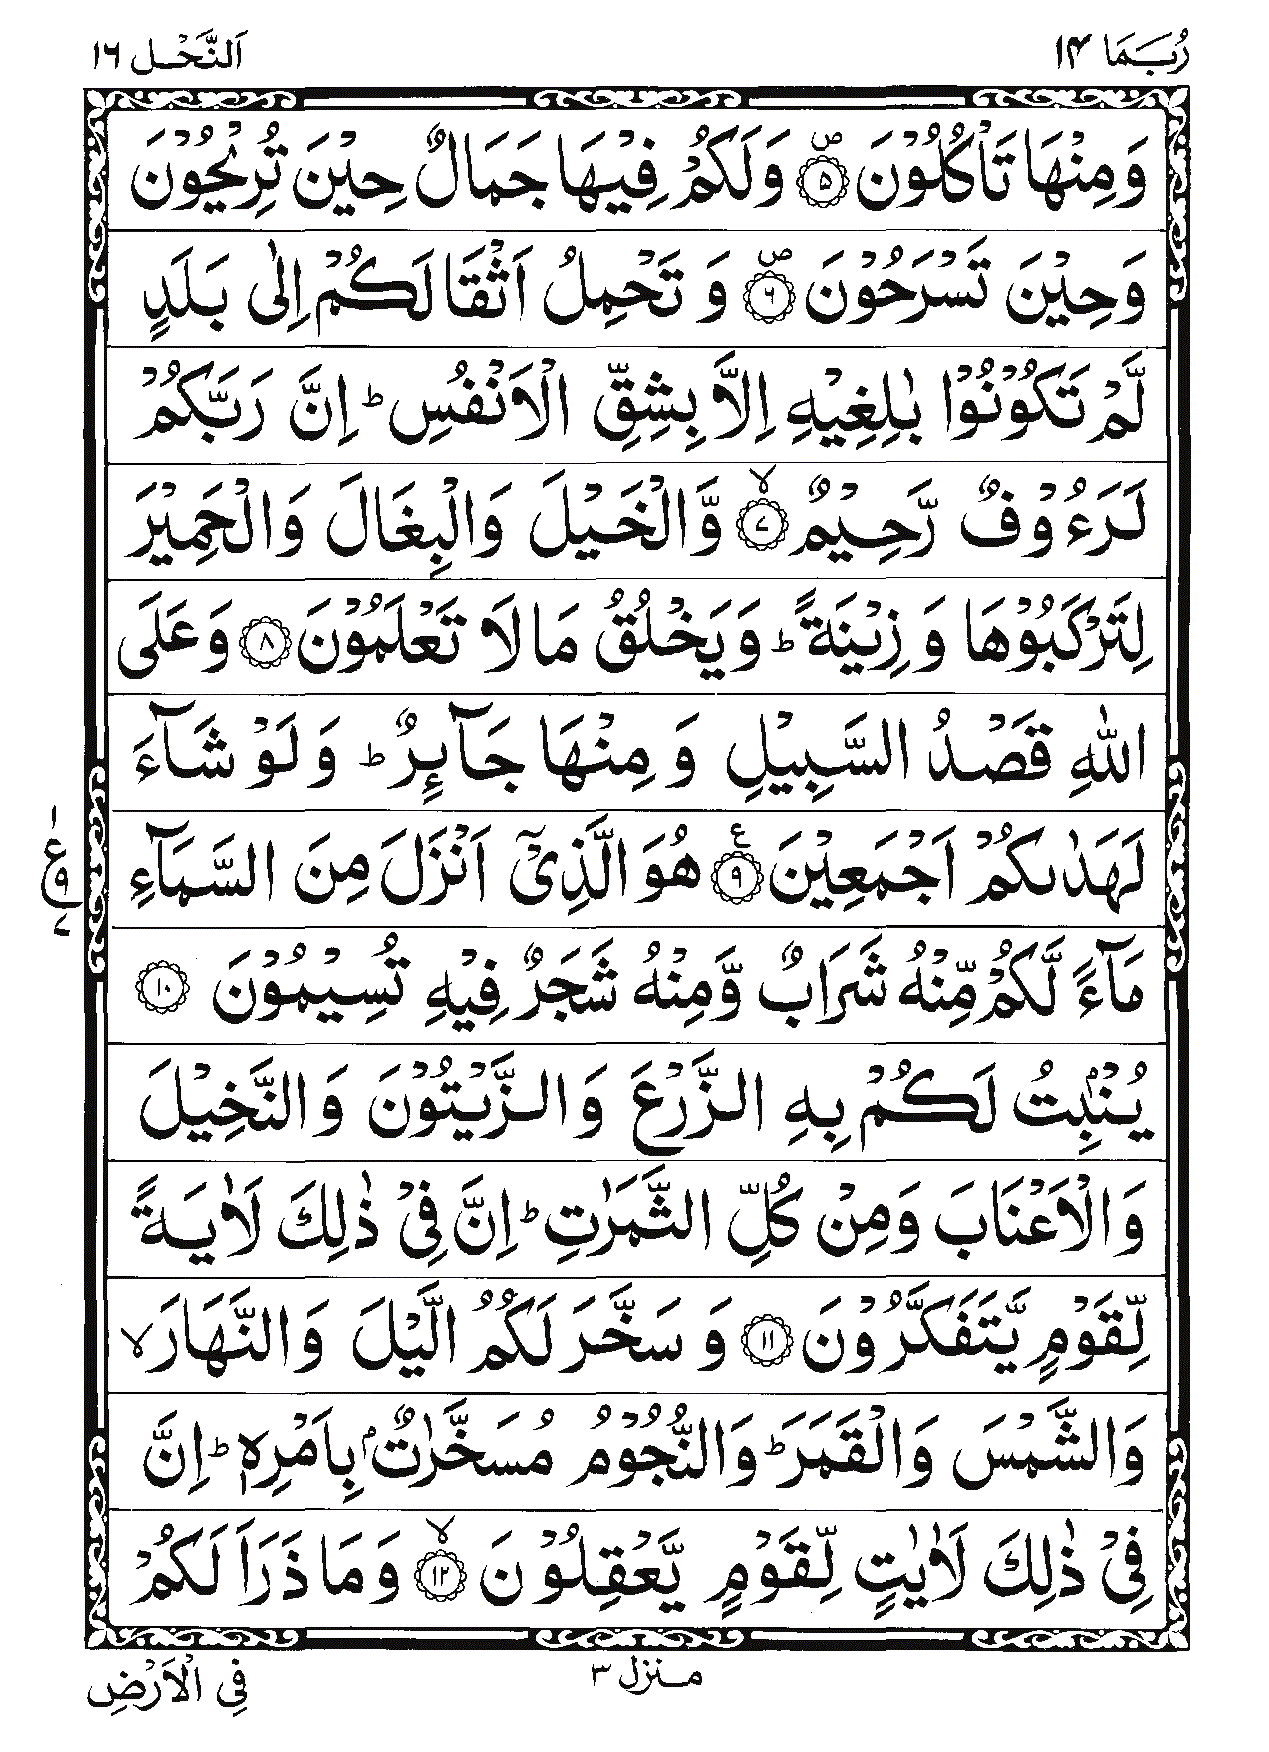 رُبَمَا ۱۴
اَلنَّحْل ۱۶
وَمِنْهَا تَاْكُلُوْنَ ۪﴿۵﴾ وَلَكُمْ فِيْهَا جَمَالٌ حِيْنَ تُرِيْحُوْنَ
وَحِيْنَ تَسْرَحُوْنَ ۪﴿۶﴾ وَ تَحْمِلُ اَثْقَالَكُمْ اِلٰى بَلَدٍ
لَّمْ تَكُوْنُوْا بٰلِغِيْهِ اِلَّا بِشِقِّ الْاَنْفُسِ ؕ اِنَّ رَبَّكُمْ
لَرَءُوْفٌ رَّحِيْمٌ ۙ﴿۷﴾ وَّالْخَيْلَ وَالْبِغَالَ وَالْحَمِيْرَ
لِتَرْكَبُوْهَا وَ زِيْنَةً ؕ وَيَخْلُقُ مَا لَا تَعْلَمُوْنَ ﴿۸﴾ وَعَلَى
اللّٰهِ قَصْدُ السَّبِيْلِ وَ مِنْهَا جَآئِرٌ ؕ وَ لَوْ شَآءَ
لَهَدٰىكُمْ اَجْمَعِيْنَ ﴿۹﴾ ع هُوَ الَّذِيْۤ اَنْزَلَ مِنَ السَّمَآءِ
۱ ع ۹ ۷
مَآءً لَّكُمْ مِّنْهُ شَرَابٌ وَّمِنْهُ شَجَرٌ فِيْهِ تُسِيْمُوْنَ ﴿۱۰﴾
يُنْۢبِتُ لَكُمْ بِهِ الزَّرْعَ وَ الزَّيْتُوْنَ وَالنَّخِيْلَ
وَالْاَعْنَابَ وَمِنْ كُلِّ الثَّمَرٰتِ ؕ اِنَّ فِيْ ذٰلِكَ لَاٰيَةً
لِّقَوْمٍ يَّتَفَكَّرُوْنَ ﴿۱۱﴾ وَ سَخَّرَ لَكُمُ الَّيْلَ وَالنَّهَارَ ۙ
وَالشَّمْسَ وَالْقَمَرَ ؕ وَالنُّجُوْمُ مُسَخَّرٰتٌۢ بِاَمْرِهٖ ؕ اِنَّ
فِيْ ذٰلِكَ لَاٰيٰتٍ لِّقَوْمٍ يَّعْقِلُوْنَ ۙ﴿۱۲﴾ وَمَا ذَرَاَ لَكُمْ
منزل ۳
فِي الْاَرْضِ